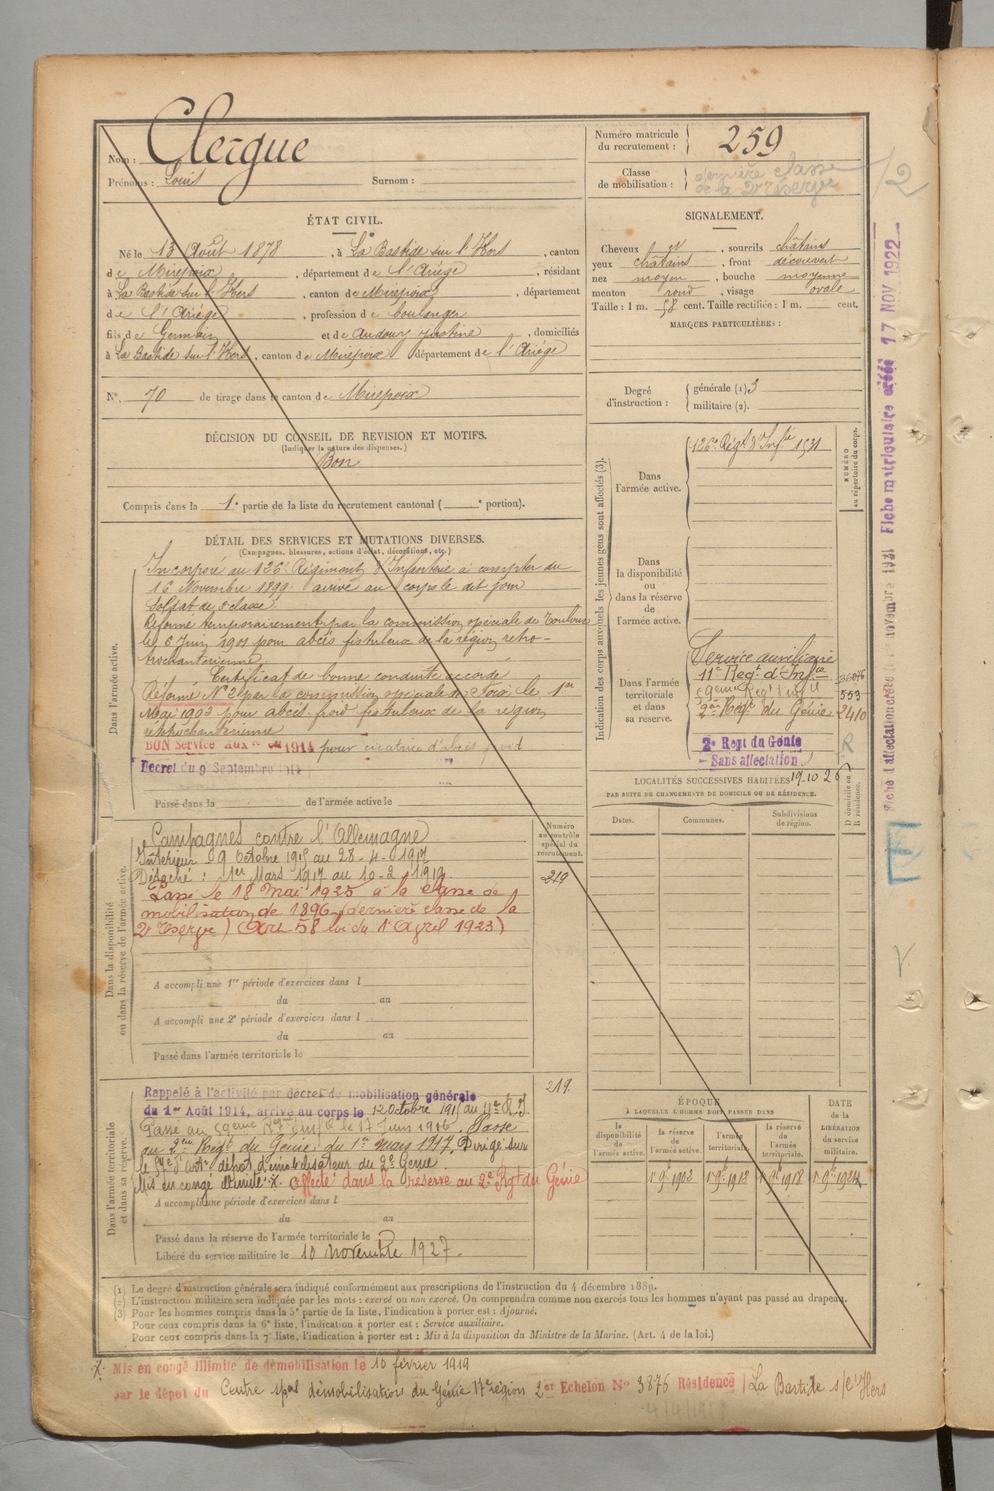 Nom : Clergue
Prénoms : Louis Surnom :
Numéro matricule du recrutement : 259
Classe de mobilisation : dernière classe de la 2e réserve
/2
ÉTAT CIVIL.
Né le 13 Août 1878, à La Bastide sur l'Hers, canton
de Mirepoix, département de l'Ariège, résidant
à La Bastide sur l'Hers, canton de Mirepoix, département
de l'Ariège, profession de boulanger
fils de Germain et de Audouy Justine, domiciliés
à La Bastide sur l'Hers, canton de Mirepoix département de l'Ariège
N° 70 de tirage dans le canton de Mirepoix
DÉCISION DU CONSEIL DE REVISION ET MOTIFS.
(Indiquer la nature des dispenses.)
Bon
Compris dans la 1e partie de la liste du recrutement cantonal ( e portion).
SIGNALEMENT.
Cheveux et, sourcils châtains
yeux châtains, front découvert
nez moyen, bouche moyenne
menton rond, visage ovale
Taille : 1 m. 58 cent. Taille rectifiée : 1 m. cent.
MARQUES PARTICULIÈRES :
Degré d'instruction : générale (1) 3
militaire (2).
DÉTAIL DES SERVICES ET MUTATIONS DIVERSES.
(Campagnes, blessures, actions d'éclat, décorations, etc.)
Dans l'armée active.
Incorporé au 126e Régiment d'Infanterie à compter du
16 Novembre 1899 arrivé au corps le dit jour
Soldat de 2e classe.
Réformé temporairement par la commission spéciale de Toulouse
le 6 Juin 1901 pour abcès fistuleux de la région rétro-
trochantérienne
Certificat de bonne conduite accordé
Réformé N° 2 par la commission spéciale de Foix le 1er
Mai 1903 pour abcès froid fistuleux de la région
rétrochantérienne
BON Service Aux 1914 pour cicatrice d'abcès froid
Décret du 9 Septembre 1914
Passé dans la de l'armée active le
Indication des corps auxquels les jeunes gens sont affectés (3).
Dans l'armée active.
126e Régt d'Infie 1531
NUMÉRO au répertoire du corps.
Dans la disponibilité ou dans la réserve de l'armée active.
Dans l'armée territoriale et dans sa réserve.
Service auxiliaire
11e Régt d'Infie
59ème Régt Infie 553
2ème Régt du Génie 2410
2e Régt du Génie
Sans affectation
R
LOCALITÉS SUCCESSIVES HABITÉES 19.10.26
PAR SUITE DE CHANGEMENTS DE DOMICILE OU DE RÉSIDENCE.
Dates. Communes. Subdivisions de région. D domicile ou R résidence.
Dans la disponibilité ou dans la réserve de l'armée active.
Numéro au contrôle spécial du recrutement.
219
Campagnes contre l'Allemagne
Intérieur : 9 Octobre 1915 au 28-4-1917
Détaché : 1er Mars 1917 au 10-2-1919
Passé le 18 Mai 1925 à la classe de
mobilisation de 1896 (dernière classe de la
2e réserve) (Art 58 loi du 1er Avril 1923)
A accompli une 1re période d'exercices dans l
du au
A accompli une 2e période d'exercices dans l
du au
Passé dans l'armée territoriale le
Dans l'armée territoriale et dans sa réserve.
219
Rappelé à l'activité par décret de mobilisation générale
du 1er Août 1914, arrivé au corps le 12 Octobre 1915 au 11e R.I.
Passé au 59ème Régt d'Infie le 17 Juin 1916. Passé
au 2ème Régt du Génie du 1er mars 1917, Dirigé sur
le dépôt démobilisateur du 2e Génie
Mis en congé illimité X. affecté dans la réserve au 2e Rgt du Génie
A accompli une période d'exercices dans l
du au
Passé dans la réserve de l'armée territoriale le
Libéré du service militaire le 10 novembre 1927.
ÉPOQUE
À LAQUELLE L'HOMME DOIT PASSER DANS
DATE de la LIBÉRATION du service militaire.
la disponibilité de l'armée active. la réserve de l'armée active. l'armée territoriale. la réserve de l'armée territoriale.
1er 9bre 1902 1er 9bre 1912 1er 9bre 1918 1er 9bre 1924
(1) Le degré d'instruction générale sera indiqué conformément aux prescriptions de l'instruction du 4 décembre 1889.
(2) L'instruction militaire sera indiquée par les mots : exercé ou non exercé. On comprendra comme non exercés tous les hommes n'ayant pas passé au drapeau.
(3) Pour les hommes compris dans la 5e partie de la liste, l'indication à porter est : Ajourné.
Pour ceux compris dans la 6e liste, l'indication à porter est : Service auxiliaire.
Pour ceux compris dans la 7e liste, l'indication à porter est : Mis à la disposition du Ministre de la Marine. (Art. 4 de la loi.)
X. Mis en congé illimité de démobilisation le 10 février 1919
par le dépôt du Centre spal démobilisation du Génie 17e région 2er Echelon N° 3876 Résidence La Bastide s/l'Hers
Fiche matriculaire créée 17 NOV 1922